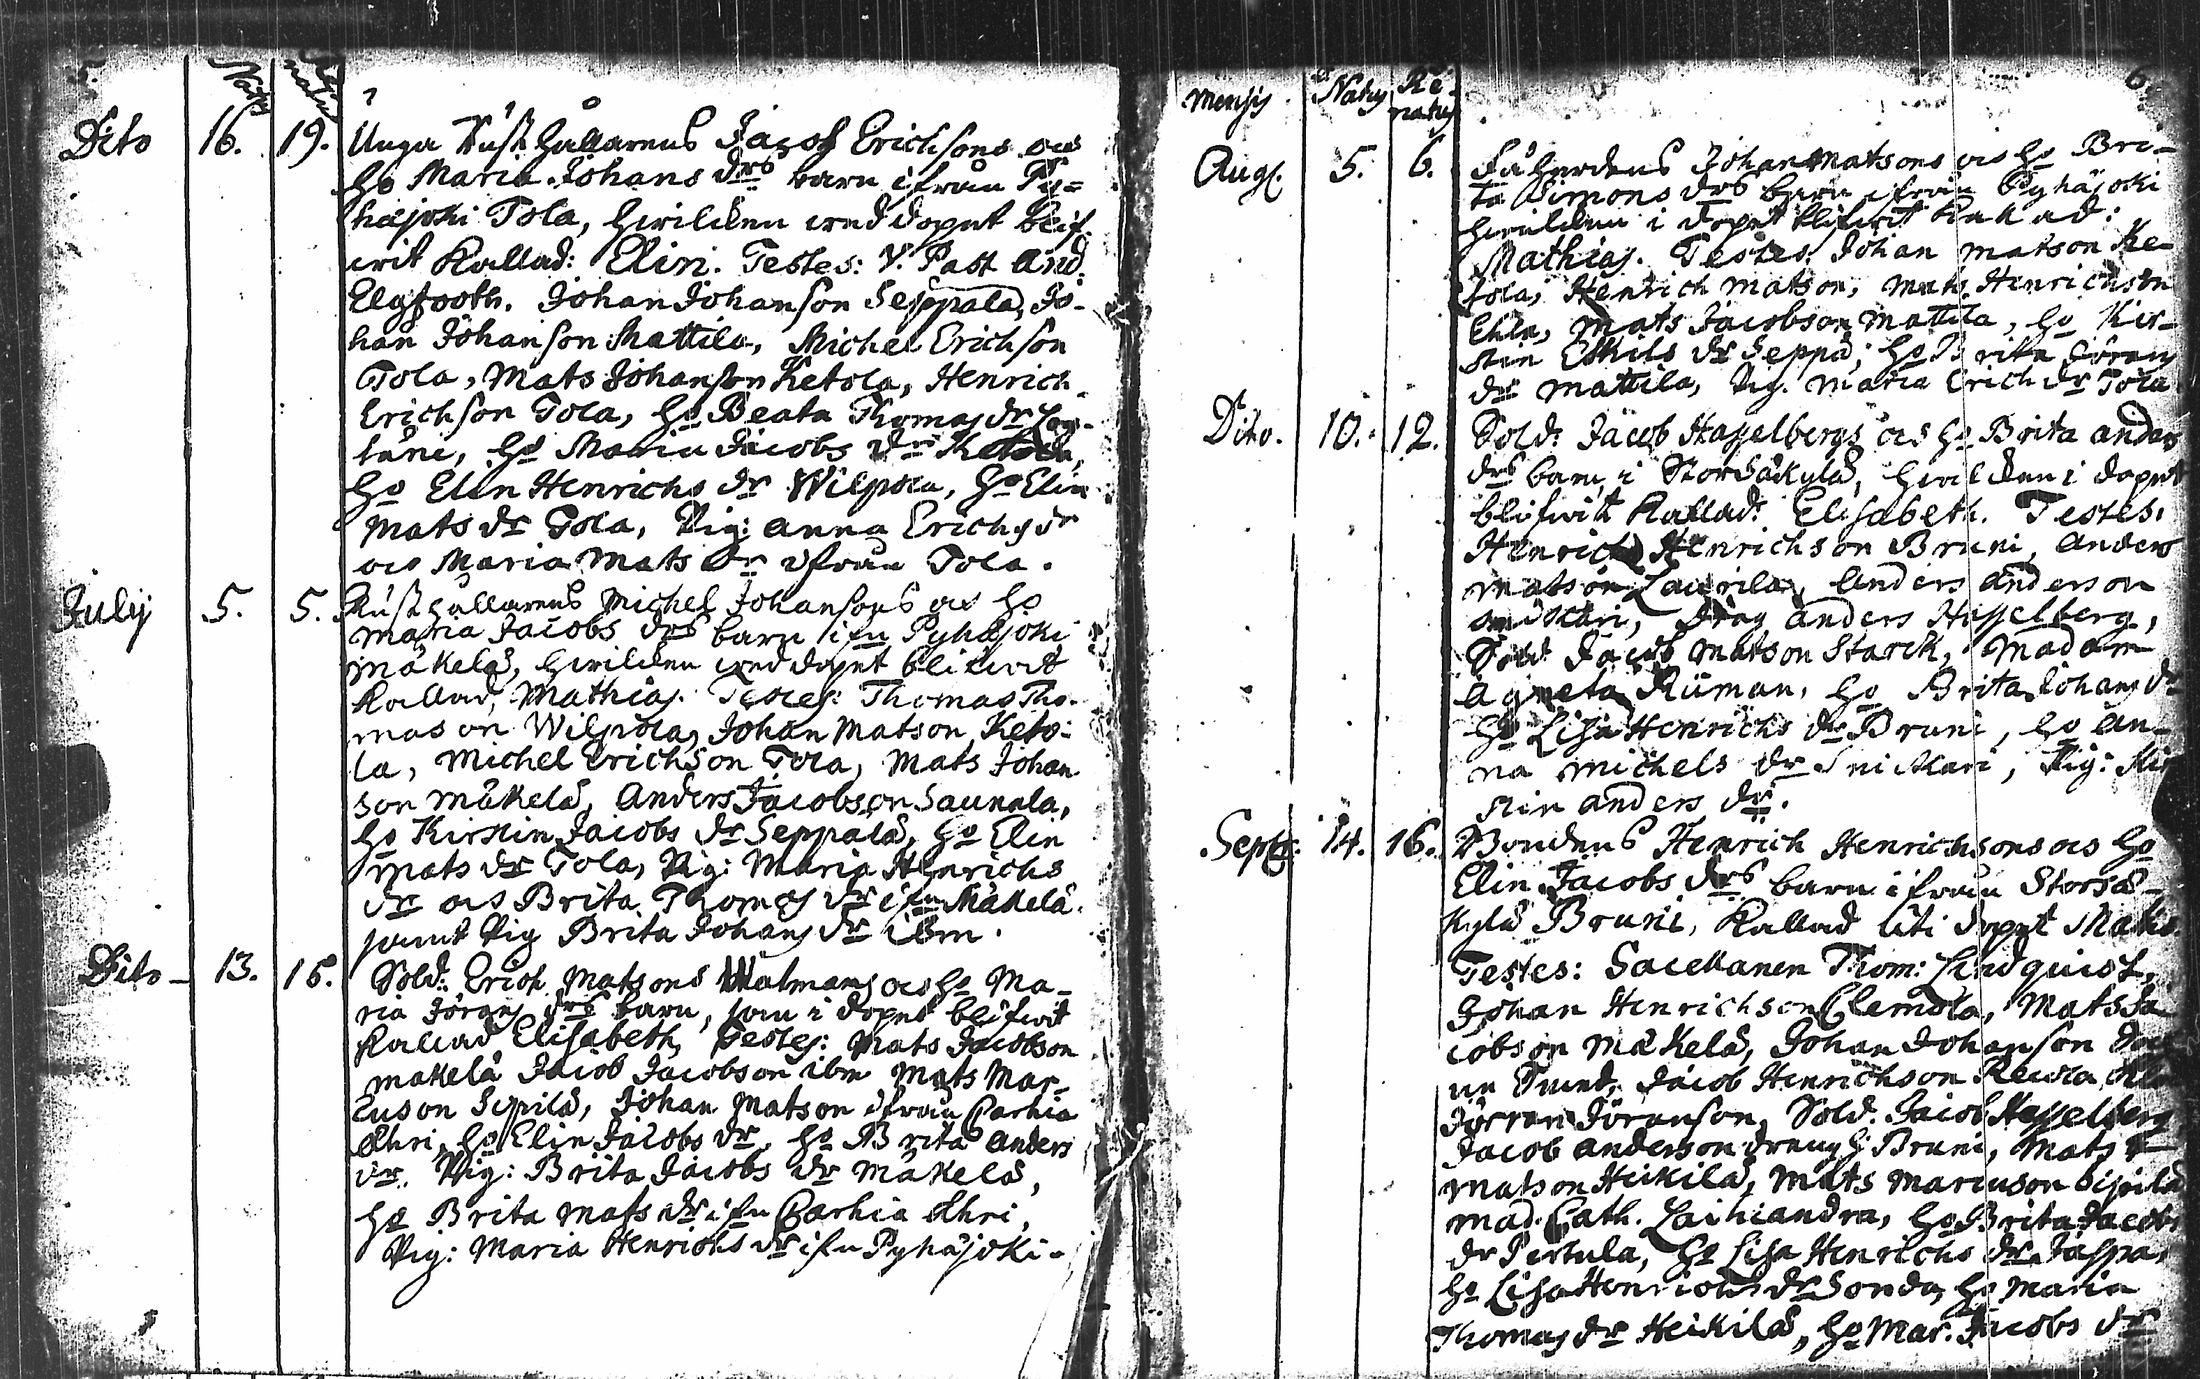 Natus Renatus
Dito 16. 19. Unga Rusthållarens Jacob Erichsons och
ho Maria Johans drs barn ifrån Py-
häjoki Tola, hwilcken wed dopet blif-
wit Kallad: Elin. Testes: V. Past And.
Elgfooth. Johan Johanson Seppala, Jo-
han Johanson Mattila, Michel Erichson
Tola, Mats Johanson Ketola, Henrich
Erichson Tola, ho Beata Thomas dr
ho Maria Jacobs dr Ketola,
ho Elin Henrichs dr Wilpola, ho Elin
Mats dr Tola, Pig: Anna Erichs dr
och Maria Mats dr ifrån Tola.
July 5. 5. Rusthållarens Michel Johansons och ho
Maria Jacobs drs barn ifn Pyhäjoki
Mäkelä, hwilcken wed dopet blifwit
Kallad, Mathias. Testes: Thomas Tho-
mason Wilpola, Johan Matson Keto-
la, Michel Erichson Tola, Mats Johan
son Mäkelä, Anders Jacobson Saunala,
ho Kirstin Jacobs dr Seppalä, ho Elin
Mats dr Tola, Pig: Maria Henrichs
dr och Brita Thomas dr ifn Mäkelä.
samt Pig Brita Johans dr ibm.
Dito 13. 15. Sold: Erich Matsons Walmans och ho Ma-
ria Jörans drs barn, som i dopet blifwit
Kallad Elisabeth, Testes: Mats Jacobson
Mäkelä Jacob Jacobson ibm Mats Mar-
cuson Sipilä, Johan Matson ifrån Carhia
Ehri, ho Elin Jacobs dr, ho Brita Anders
dr. Pig: Brita Jacobs dr Mäkelä,
ho Brita Mats dr ifn Carhia Ehri,
Pig: Maria Henrichs dr ifn Pyhäjoki.
6.
Mensis Natus Renatus
Aug. 5. 6. Johan Matsons och ho Bri-
ta Simons drs barn ifrån Pyhäjoki
hwilcken i dopet blifwit Kallad:
Mathias. Testes. Johan Matson Ke-
tola, Henrich Matson, Mats Henrichson
Mats Jacobson Mattila, ho Kir-
stin Eskils dr Seppä, ho Brita Jörans
dr Mattila, Pig. Maria Erich dr Tola
Dito. 10. 12. Sold: Jacob Hasselbergs och ho Brita Anders
drs barn, i Storsäkylä, hwilcken i dopet
blifwit Kallad: Elisabeth. Testes.
Henrich Henrichson Bruni, Anders
Matson Laurila, Anders Anderson
Snickari, Drag Anders Hasselberg,
Sold Jacob Matson Starck, Madam
Agneta Ruman, ho Brita Johans dr
ho Lisa Henrichs dr Bruni, ho An-
na Michels dr Snickari, Pig: Kir
stin Anders dr.
Sept: 14. 16. Bondens Henrich Henrichsons och ho
Elin Jacobs drs barn ifrån Storsä-
kylä Bruni, Kallad uti dopet Mats.
Testes: Thom: Lindquist,
Johan Henrichson Clemola, Mats Ja
cobson Mäkelä, Johan Johanson
Jacob Henrichson
Jörran Jöranson, Sold. Jacob Hasselberg
Jacob Anderson Bruni, Mats
Matson Heikilä, Mats Marcuson Sipilä
Mad. Cath. Laihiandra, ho Brita Jacobs
dr Pertula, ho Lisa Henrichs dr
ho Lisa Henrichs dr Sonda, ho Maria
Thomas dr Heikilä, ho Mar. Jacobs dr